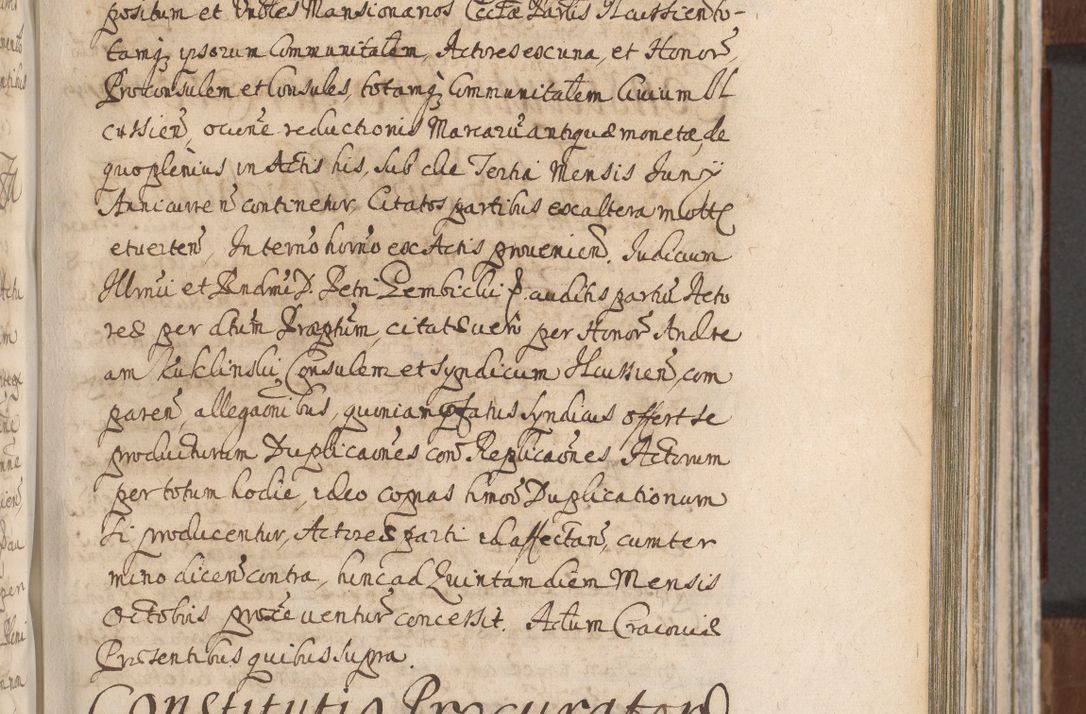 positum et Vnbles Mansionarios Ecctæ Partis Ilcussien to-
tamq; ipsorum Communitatem, Actores ex una, et Honor,
Proconsulem et Consules, totamq; Communitatem Civium Il
cussien, occne reductionis Marcarũ antiquæ monetæ, de
quo plenius in Actis his, sub die Tertia Mensis Junÿ
Anni curren continetur, Citatos partibus ex altera
et verten, In termo horno ex Actis provenien. Judicium
Illmũi et Rndmi D. Petri Gembicki P. auditis partiũ Acto
res per dtum Præptum, citatẽ vero per Honor Andre
am Kuklinski, Consulem et Syndicum Ilcussien, com
paren, allegaonibus, quoniam pfatus Syndicus offert se
producturum Duplicaones con Replicaones Actorum
per totum hodie, ideo copias hmoi Duplicationum
si producentur, Actorea parti id affectan, cum ter
mino dicen contra, hinc ad Quintam diem Mensis
Octobris proxe ventur concessit. Actum Cracoviæ
Præsentibus quibus supra.
Constitutio Procurator